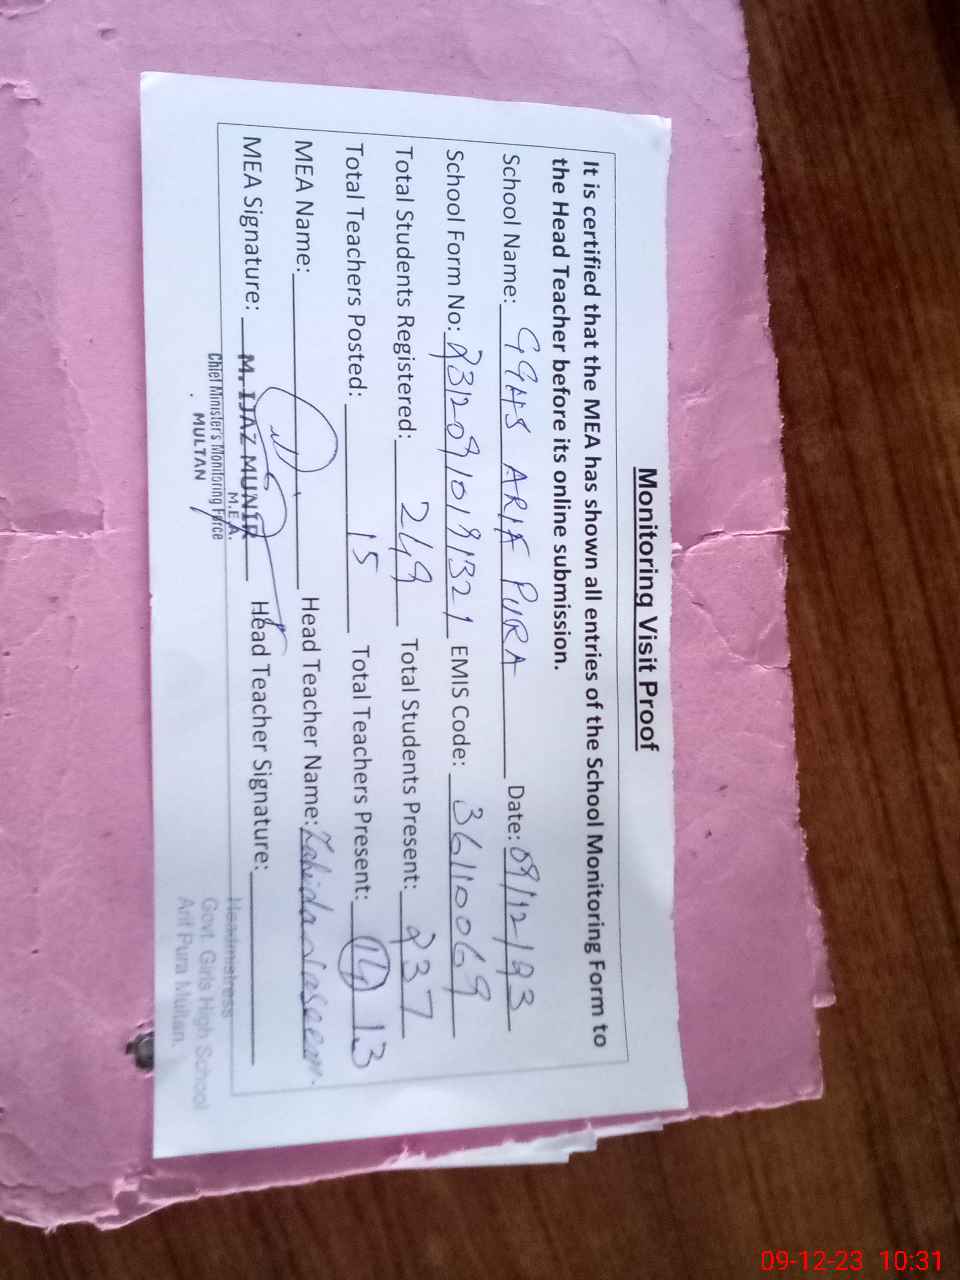 Monitoring Visit Proof
It is certified that the MEA has shown all entries of the School Monitoring Form to
the Head Teacher before its online submission.
School Name: GGHS ARIF PURA Date: 09/12/23
School Form No: 23120910191321 EMIS Code: 36110069
Total Students Registered: 249 Total Students Present: 237
Total Teachers Posted: 15 Total Teachers Present: 14 13
MEA Name: Head Teacher Name: Zahida Naseem.
MEA Signature: M. IJAZ MUNIR Head Teacher Signature:
M.E.A.
Chief Minister's Monitoring Force
MULTAN
Headmistress
Govt. Girls High School
Arif Pura Multan.
09-12-23 10:31